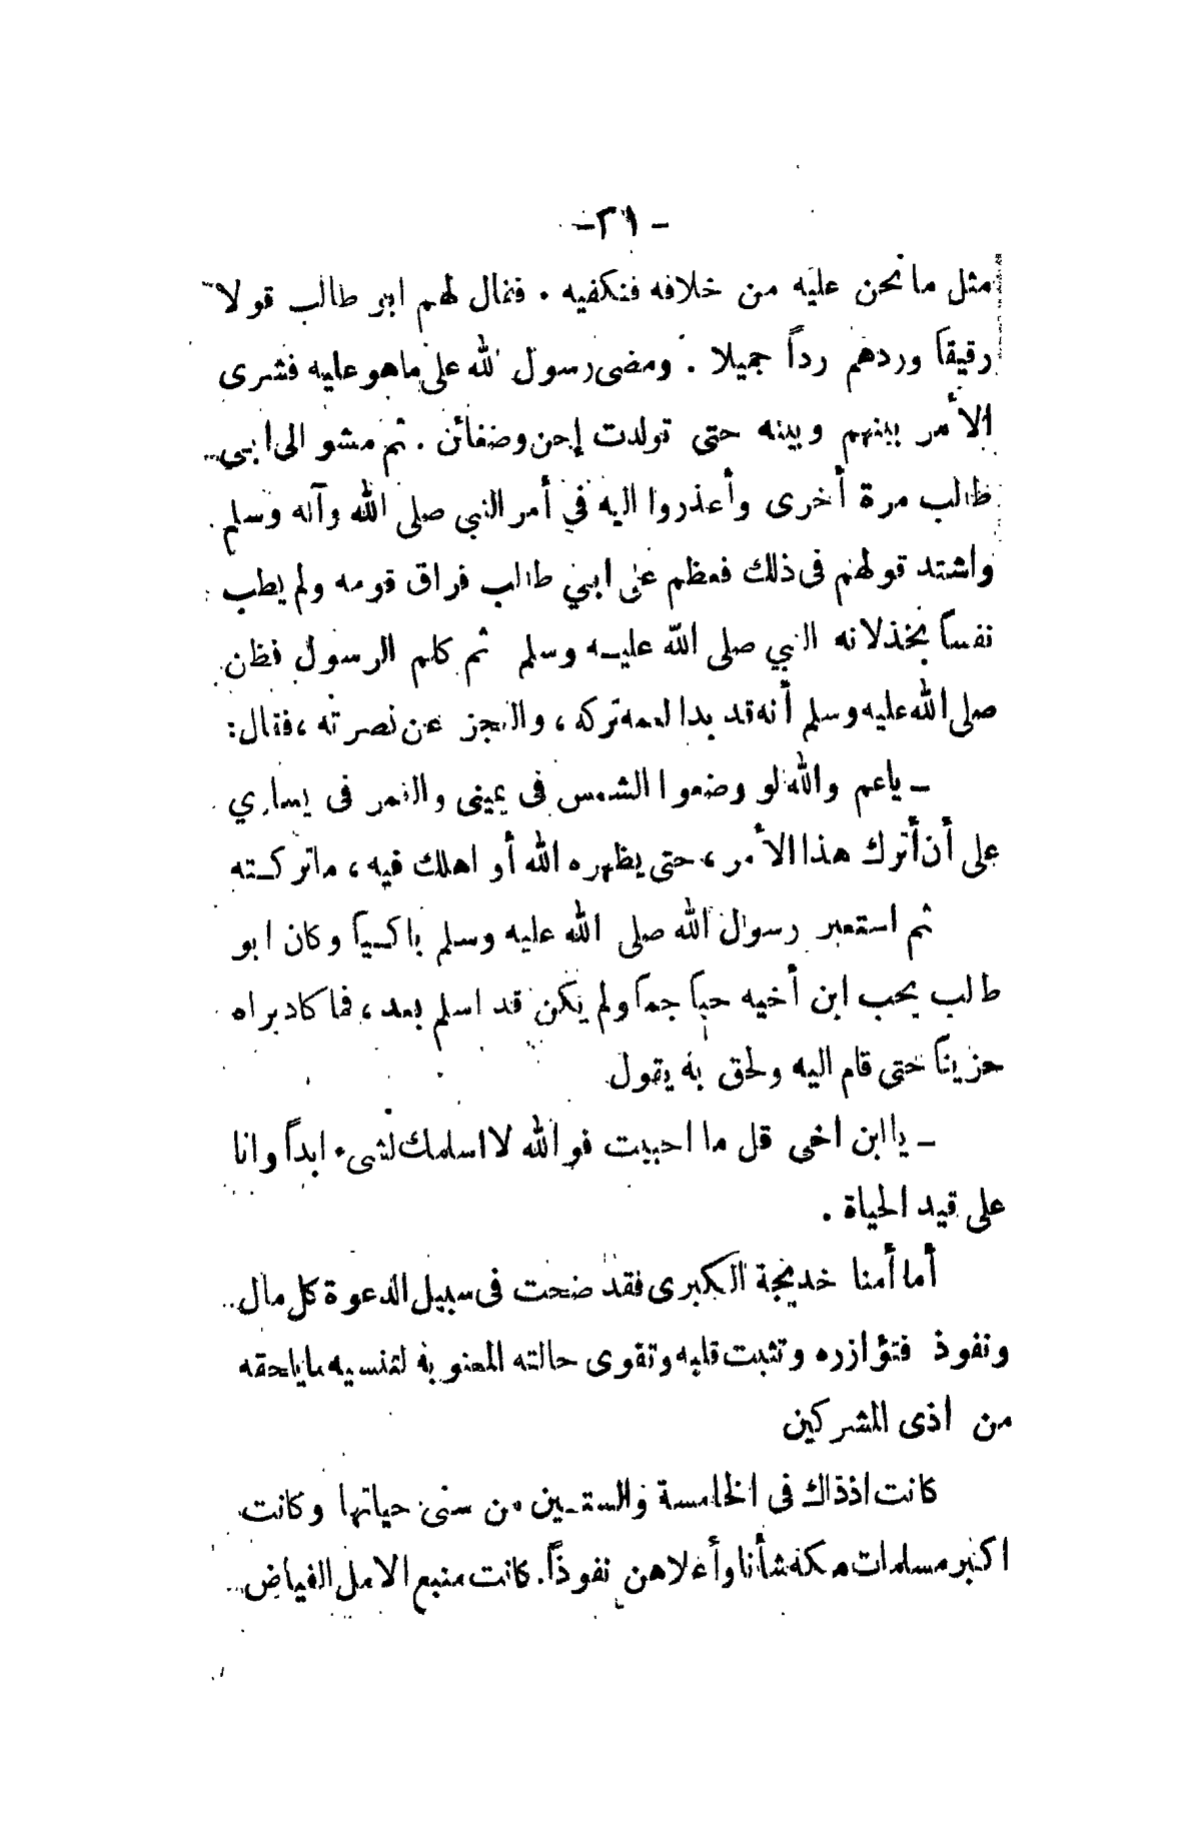 - ٢١ -
مثل ما نحن عليه من خلافه فنكفيه . فقال لهم ابو طالب قولا
رقيقاً وردهم رداً جميلا . ومضى رسول الله على ما هو عليه فشرى
الأمر بينهم وبينه حتى تولدت إحن وضغائن . ثم مشو الى ابي
طالب مرة أخرى وأعذروا اليه في أمر النبي صلى الله وآله وسلم
واشتد قولهم فى ذلك فعظم على ابي طالب فراق قومه ولم يطب
نفساً بخذلانه النبي صلى الله عليه وسلم ثم كلم الرسول فظن
صلى الله عليه وسلم أنه قد بدا لعمه تركه ، والعجز عن نصرته ، فقال :
ـ ياعم والله لو وضعوا الشمس فى يمينى والقمر فى يساري
على أن أترك هذا الأمر ، حتى يظهره الله أو اهلك فيه ، ما تركته
ثم استعبر رسول الله صلى الله عليه وسلم باكياً وكان ابو
طالب يحب ابن أخيه حباً جماً ولم يكن قد اسلم بعد ، فما كاد يراه
حزيناً حتى قام اليه ولحق به يقول
ـ يا ابن اخى قل ما احببت فو الله لا اسلمك لشىء ابداً وانا
على قيد الحياة .
أما أمنا خديجة الكبرى فقد ضحت فى سبيل الدعوة كل مال
ونفوذ فتؤازره وتثبت قلبه وتقوى حالته المعنوية لتنسيه ما يلحقه
من اذى المشركين
كانت اذذاك فى الخامسة والستين من سنى حياتها وكانت
اكبر مسلمات مكة شأنا وأعلاهن نفوذاً . كانت منبع الامل الفياض